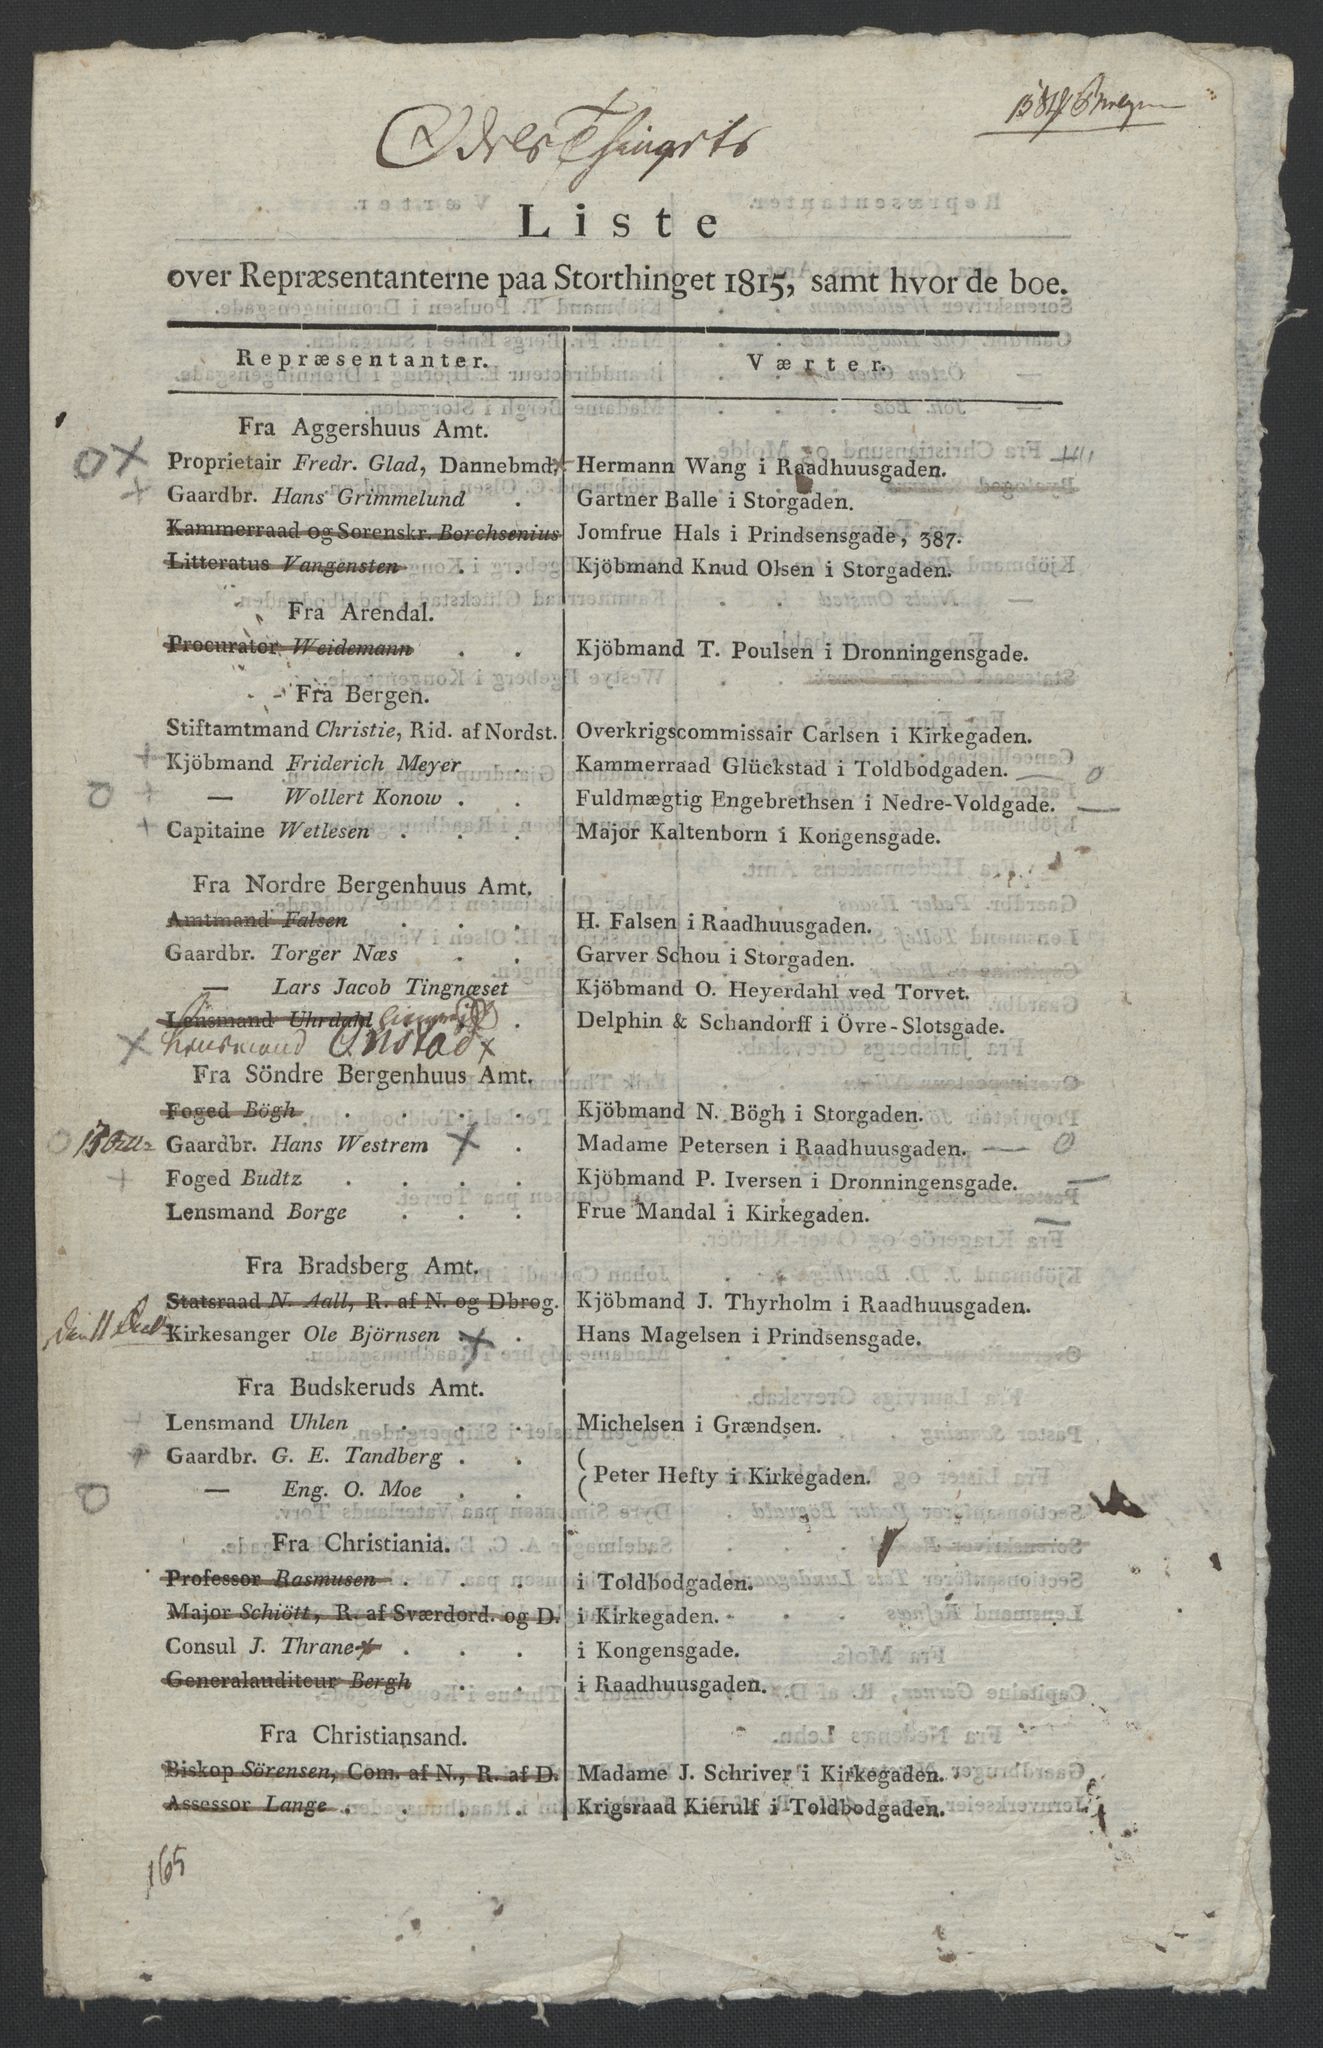 Odels Thingets
Liste
over Repræsentanterne paa Storthinget 1815, samt hvor de boe.
Repræsentanter. Værter.
Fra Aggershuus Amt.
Proprietair Fredr. Glad, Dannebmd. Hermann Wang i Raadhuusgaden.
Gaardbr. Hans Grimmelund . Gartner Balle i Storgaden.
Kammerraad og Sorenskr. Borchsenius Jomfrue Hals i Prindsensgade, 387.
Litteratus Vangensten . . Kjöbmand Knud Olsen i Storgaden.
Fra Arendal.
Procurator Weidemann . . Kjöbmand T. Poulsen i Dronningensgade.
Fra Bergen.
Stiftamtmand Christie, Rid. af Nordst. Overkrigscommissair Carlsen i Kirkegaden.
Kjöbmand Friderich Meyer . Kammerraad Glückstad i Toldbodgaden. — 0
— Wollert Konow . . Fuldmægtig Engebrethsen i Nedre-Voldgade. —
Capitaine Wetlesen . . . Major Kaltenborn i Kongensgade.
Fra Nordre Bergenhuus Amt.
Amtmand Falsen . . . H. Falsen i Raadhuusgaden.
Gaardbr. Torger Næs . . Garver Schou i Storgaden.
— Lars Jacob Tingnæset Kjöbmand O. Heyerdahl ved Torvet.
Lensmand Uhrdahl . Delphin & Schandorff i Övre-Slotsgade.
Lensmand Onstad x
Fra Söndre Bergenhuus Amt.
Foged Bögh . . . . Kjöbmand N. Bögh i Storgaden.
Gaardbr. Hans Westrem x . Madame Petersen i Raadhuusgaden. — 0
Foged Budtz . . . . Kjöbmand P. Iversen i Dronningensgade. —
Lensmand Borge . . . Frue Mandal i Kirkegaden. —
Fra Bradsberg Amt.
Statsraad N. Aall, R. af N. og Dbrog. Kjöbmand J. Thyrholm i Raadhuusgaden.
Kirkesanger Ole Björnsen x . Hans Magelsen i Prindsensgade.
Fra Budskeruds Amt.
Lensmand Uhlen . . . Michelsen i Grændsen.
Gaardbr. G. E. Tandberg . .
— Eng. O. Moe . . Peter Hefty i Kirkegaden.
Fra Christiania.
Professor Rasmusen . . . i Toldbodgaden.
Major Schiött, R. af Sværdord. og D. i Kirkegaden.
Consul J. Thrane x . . . i Kongensgade.
Generalauditeur Bergh . . i Raadhuusgaden.
Fra Christiansand.
Biskop Sörensen, Com. af N., R. af D. Madame J. Schriver i Kirkegaden.
Assessor Lange . . . . Krigsraad Kierulf i Toldbodgaden.
165